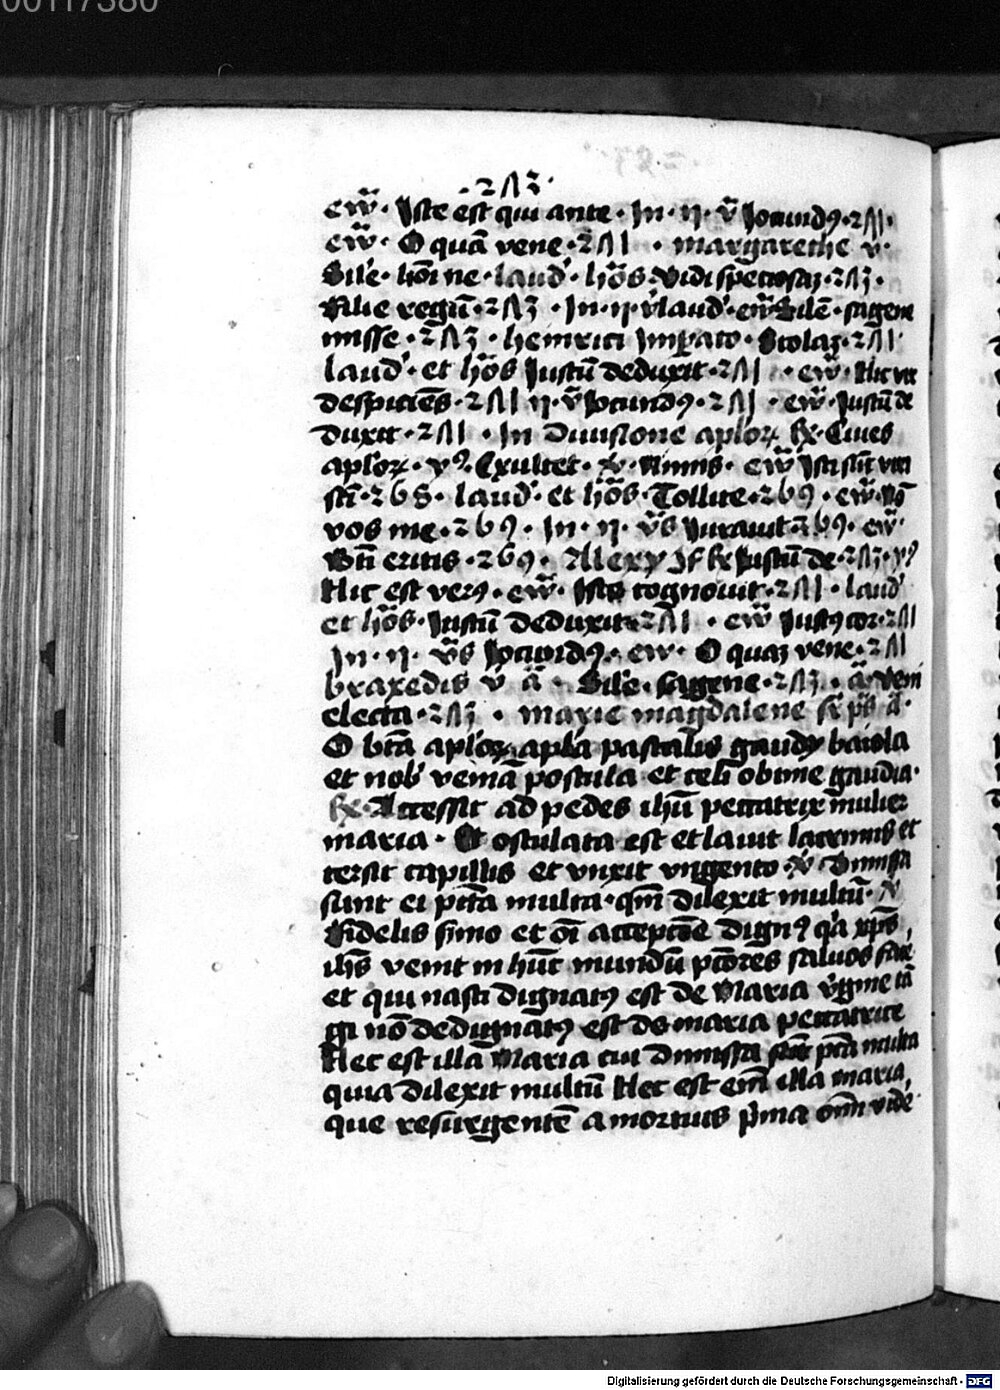 00117380
· 2Λ3 ·
ew̄ · Iste est qui ante · In · ij · v̄ Iocundꝯ · 2Λ1 ·
ew̄ · O quā vene · 2Λ1 · margarethe v ·
Sile · hōi ne · laud' · hȳos · vidi speciosaʒ · 2Λ3 ·
filie regū · 2Λ3 · In · ij · v̄ laud' · ew̄ Silē · sagene
misse · 2Λ3 · heinrici Impato · Stolaʒ · 2Λ1 ·
laud' · et hȳos Iustū deduxit · 2Λ1 · ew̄ · Hic vir
despiciēs · 2Λ1 ij · v̄ Iocundꝯ · 2Λ1 · ew̄ · Iustū de
duxit · 2Λ1 · In Diuisione aploꝝ ℟ · Ciues
aploꝝ · vꝰ · Exultet · ℣ · Nimis · ew̄ Isti sūt viri
scī · 268 · laud' · et hȳos · Tollite · 269 · ew̄ · Nō
vos me · 269 · In · ij · v̄s Iurauit · 269 · ew̄ ·
Bn̄ eritis · 269 · Allexy 9f ℟ Iustū de · 2Λ3 · vꝰ
Hic est verꝯ · ew̄ · Iste cognouit · 2Λ1 · laud'
et hȳos · Iustū deduxit · 2Λ1 · ew̄ Iustꝯ cor · 2Λ1
In · ij · v̄s Iocundꝯ · ew̄ · O quaʒ vene · 2Λ1
braxedis v ā · Sile · sagene · 2Λ3 · ā · veni
electa · 2Λ3 · marie magdalene sꝑ ps ā ·
O btā aploꝝ apla pascalis gaudij baiola
et nob' veniā postula et celi obtine gaudia ·
℟ · Accessit ad pedes ihū peccatrix mulier
maria · Et osculata est et lauit lacrimis et
tersit capillis et vnxit vngento ℣ Dimissa
sunt ei pctā multa · qm̄ dilexit multū · ℣
Fidelis simo et oī acceptōe dignꝯ qa xp̄s
ihs̄ venit in hūc mundū pctōres saluos face
et qui nasci dignatꝯ est de Maria v̓gine tā
gi nō dedignatꝯ est de maria peccatrice
Hec est illa Maria cui dimissa sūt pctā multa
quia dilexit multū Hec est em̄ illa maria,
que resurgentē a mortuis p̓ma om̄ vide
Digitalisierung gefördert durch die Deutsche Forschungsgemeinschaft - DFG